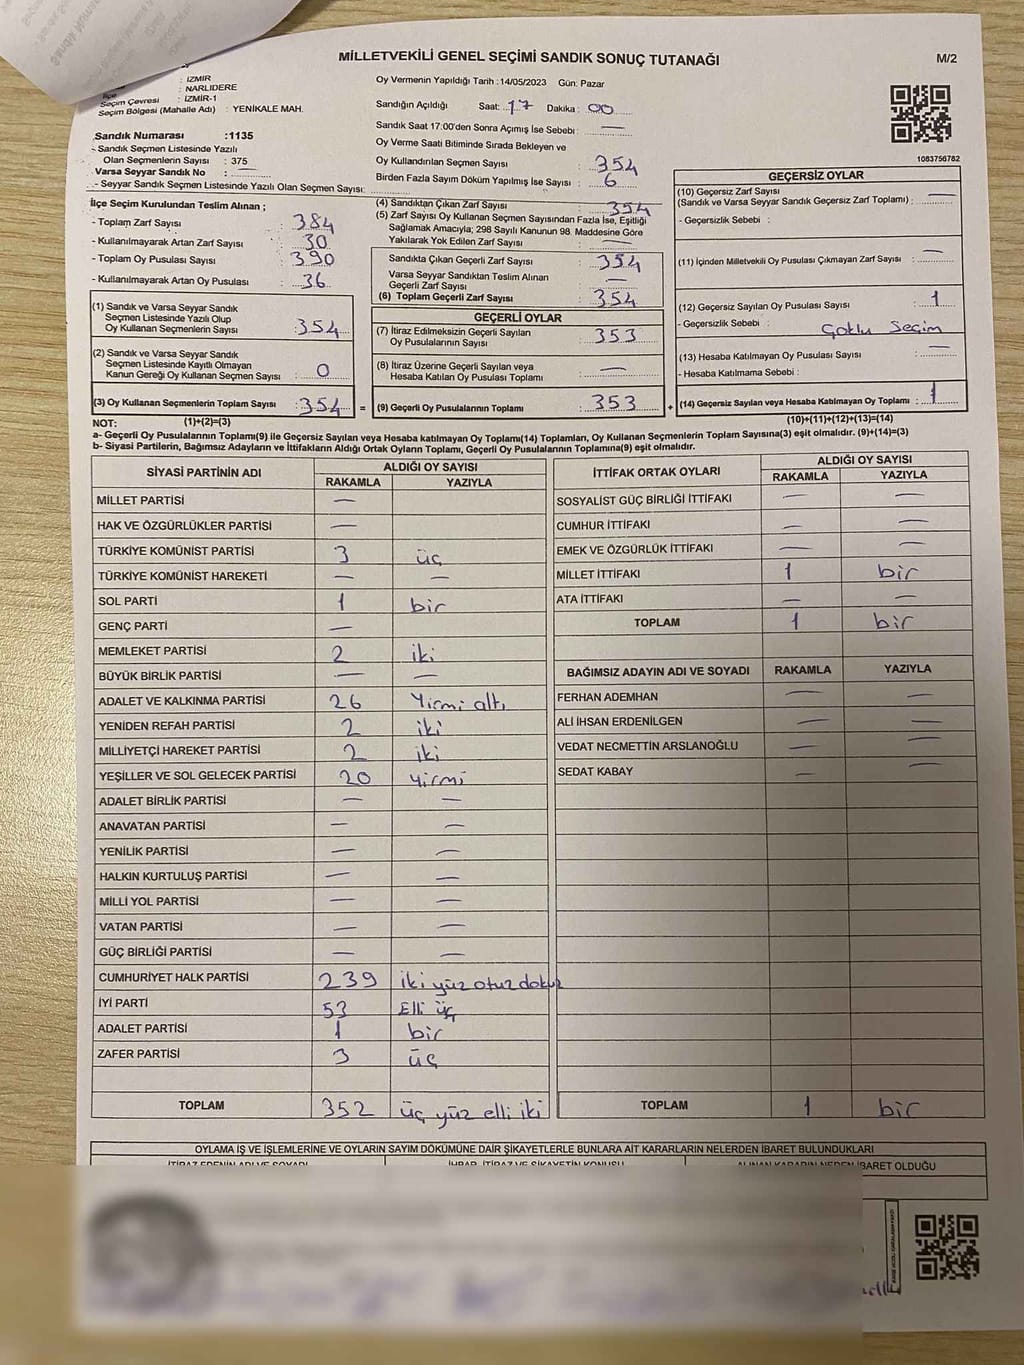 MİLLETVEKİLİ GENEL SEÇİMİ SANDIK SONUÇ TUTANAĞI
M/2
: İZMİR
İlçe : NARLIDERE
Seçim Çevresi : İZMİR-1
Seçim Bölgesi (Mahalle Adı) : YENİKALE MAH.
Sandık Numarası :1135
- Sandık Seçmen Listesinde Yazılı
Olan Seçmenlerin Sayısı : 375
Varsa Seyyar Sandık No : —
- Seyyar Sandık Seçmen Listesinde Yazılı Olan Seçmen Sayısı:
Oy Vermenin Yapıldığı Tarih :14/05/2023 Gün: Pazar
Sandığın Açıldığı Saat: 17 Dakika: 00
Sandık Saat 17:00'den Sonra Açımış İse Sebebi : —
Oy Verme Saati Bitiminde Sırada Bekleyen ve
Oy Kullandırılan Seçmen Sayısı : 354
Birden Fazla Sayım Döküm Yapılmış İse Sayısı : 6
1083756782
İlçe Seçim Kurulundan Teslim Alınan ;
- Toplam Zarf Sayısı : 384
- Kullanılmayarak Artan Zarf Sayısı : 30
- Toplam Oy Pusulası Sayısı : 390
- Kullanılmayarak Artan Oy Pusulası : 36
(1) Sandık ve Varsa Seyyar Sandık
Seçmen Listesinde Yazılı Olup
Oy Kullanan Seçmenlerin Sayısı : 354
(2) Sandık ve Varsa Seyyar Sandık
Seçmen Listesinde Kayıtlı Olmayan
Kanun Gereği Oy Kullanan Seçmen Sayısı : 0
(3) Oy Kullanan Seçmenlerin Toplam Sayısı : 354 =
(1)+(2)=(3)
(4) Sandıktan Çıkan Zarf Sayısı : 354
(5) Zarf Sayısı Oy Kullanan Seçmen Sayısından Fazla İse, Eşitliği
Sağlamak Amacıyla; 298 Sayılı Kanunun 98. Maddesine Göre
Yakılarak Yok Edilen Zarf Sayısı : —
Sandıkta Çıkan Geçerli Zarf Sayısı : 354
Varsa Seyyar Sandıktan Teslim Alınan
Geçerli Zarf Sayısı : —
(6) Toplam Geçerli Zarf Sayısı : 354
GEÇERLİ OYLAR
(7) İtiraz Edilmeksizin Geçerli Sayılan
Oy Pusulalarının Sayısı : 353
(8) İtiraz Üzerine Geçerli Sayılan veya
Hesaba Katılan Oy Pusulası Toplamı : —
(9) Geçerli Oy Pusulalarının Toplamı : 353 +
GEÇERSİZ OYLAR
(10) Geçersiz Zarf Sayısı
(Sandık ve Varsa Seyyar Sandık Geçersiz Zarf Toplamı) : —
- Geçersizlik Sebebi :
(11) İçinden Milletvekili Oy Pusulası Çıkmayan Zarf Sayısı : —
(12) Geçersiz Sayılan Oy Pusulası Sayısı : 1
- Geçersizlik Sebebi : Çoklu Seçim
(13) Hesaba Katılmayan Oy Pusulası Sayısı : —
- Hesaba Katılmama Sebebi :
(14) Geçersiz Sayılan veya Hesaba Katılmayan Oy Toplamı : 1
(10)+(11)+(12)+(13)=(14)
NOT:
a- Geçerli Oy Pusulalarının Toplamı(9) ile Geçersiz Sayılan veya Hesaba katılmayan Oy Toplamı(14) Toplamları, Oy Kullanan Seçmenlerin Toplam Sayısına(3) eşit olmalıdır. (9)+(14)=(3)
b- Siyasi Partilerin, Bağımsız Adayların ve İttifakların Aldığı Ortak Oyların Toplamı, Geçerli Oy Pusulalarının Toplamına(9) eşit olmalıdır.
SİYASİ PARTİNİN ADI ALDIĞI OY SAYISI
RAKAMLA YAZIYLA
MİLLET PARTİSİ —
HAK VE ÖZGÜRLÜKLER PARTİSİ —
TÜRKİYE KOMÜNİST PARTİSİ 3 üç
TÜRKİYE KOMÜNİST HAREKETİ — —
SOL PARTİ 1 bir
GENÇ PARTİ —
MEMLEKET PARTİSİ 2 iki
BÜYÜK BİRLİK PARTİSİ — —
ADALET VE KALKINMA PARTİSİ 26 Yirmi altı
YENİDEN REFAH PARTİSİ 2 iki
MİLLİYETÇİ HAREKET PARTİSİ 2 iki
YEŞİLLER VE SOL GELECEK PARTİSİ 20 yirmi
ADALET BİRLİK PARTİSİ — —
ANAVATAN PARTİSİ — —
YENİLİK PARTİSİ — —
HALKIN KURTULUŞ PARTİSİ — —
MİLLİ YOL PARTİSİ — —
VATAN PARTİSİ — —
GÜÇ BİRLİĞİ PARTİSİ — —
CUMHURİYET HALK PARTİSİ 239 iki yüz otuz dokuz
İYİ PARTİ 53 Elli üç
ADALET PARTİSİ 1 bir
ZAFER PARTİSİ 3 üç
TOPLAM 352 üç yüz elli iki
İTTİFAK ORTAK OYLARI ALDIĞI OY SAYISI
RAKAMLA YAZIYLA
SOSYALİST GÜÇ BİRLİĞİ İTTİFAKI — —
CUMHUR İTTİFAKI — —
EMEK VE ÖZGÜRLÜK İTTİFAKI — —
MİLLET İTTİFAKI 1 bir
ATA İTTİFAKI — —
TOPLAM 1 bir
BAĞIMSIZ ADAYIN ADI VE SOYADI RAKAMLA YAZIYLA
FERHAN ADEMHAN — —
ALİ İHSAN ERDENİLGEN — —
VEDAT NECMETTİN ARSLANOĞLU — —
SEDAT KABAY — —
TOPLAM 1 bir
OYLAMA İŞ VE İŞLEMLERİNE VE OYLARIN SAYIM DÖKÜMÜNE DAİR ŞİKAYETLERLE BUNLARA AİT KARARLARIN NELERDEN İBARET BULUNDUKLARI
İTİRAZ EDENİN ADI VE SOYADI İHBAR, İTİRAZ VE ŞİKAYETİN KONUSU ALINAN KARARIN NEDEN İBARET OLDUĞU